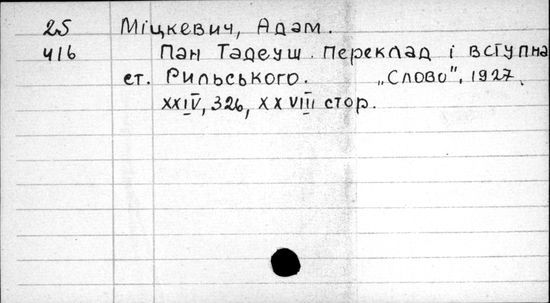 25 Міцкевич, Адам.
416 Пан Тадеуш. Переклад і вступна
ст. Рильського. „Слово", 1927.
XXIV, 326, XXVIII стор.